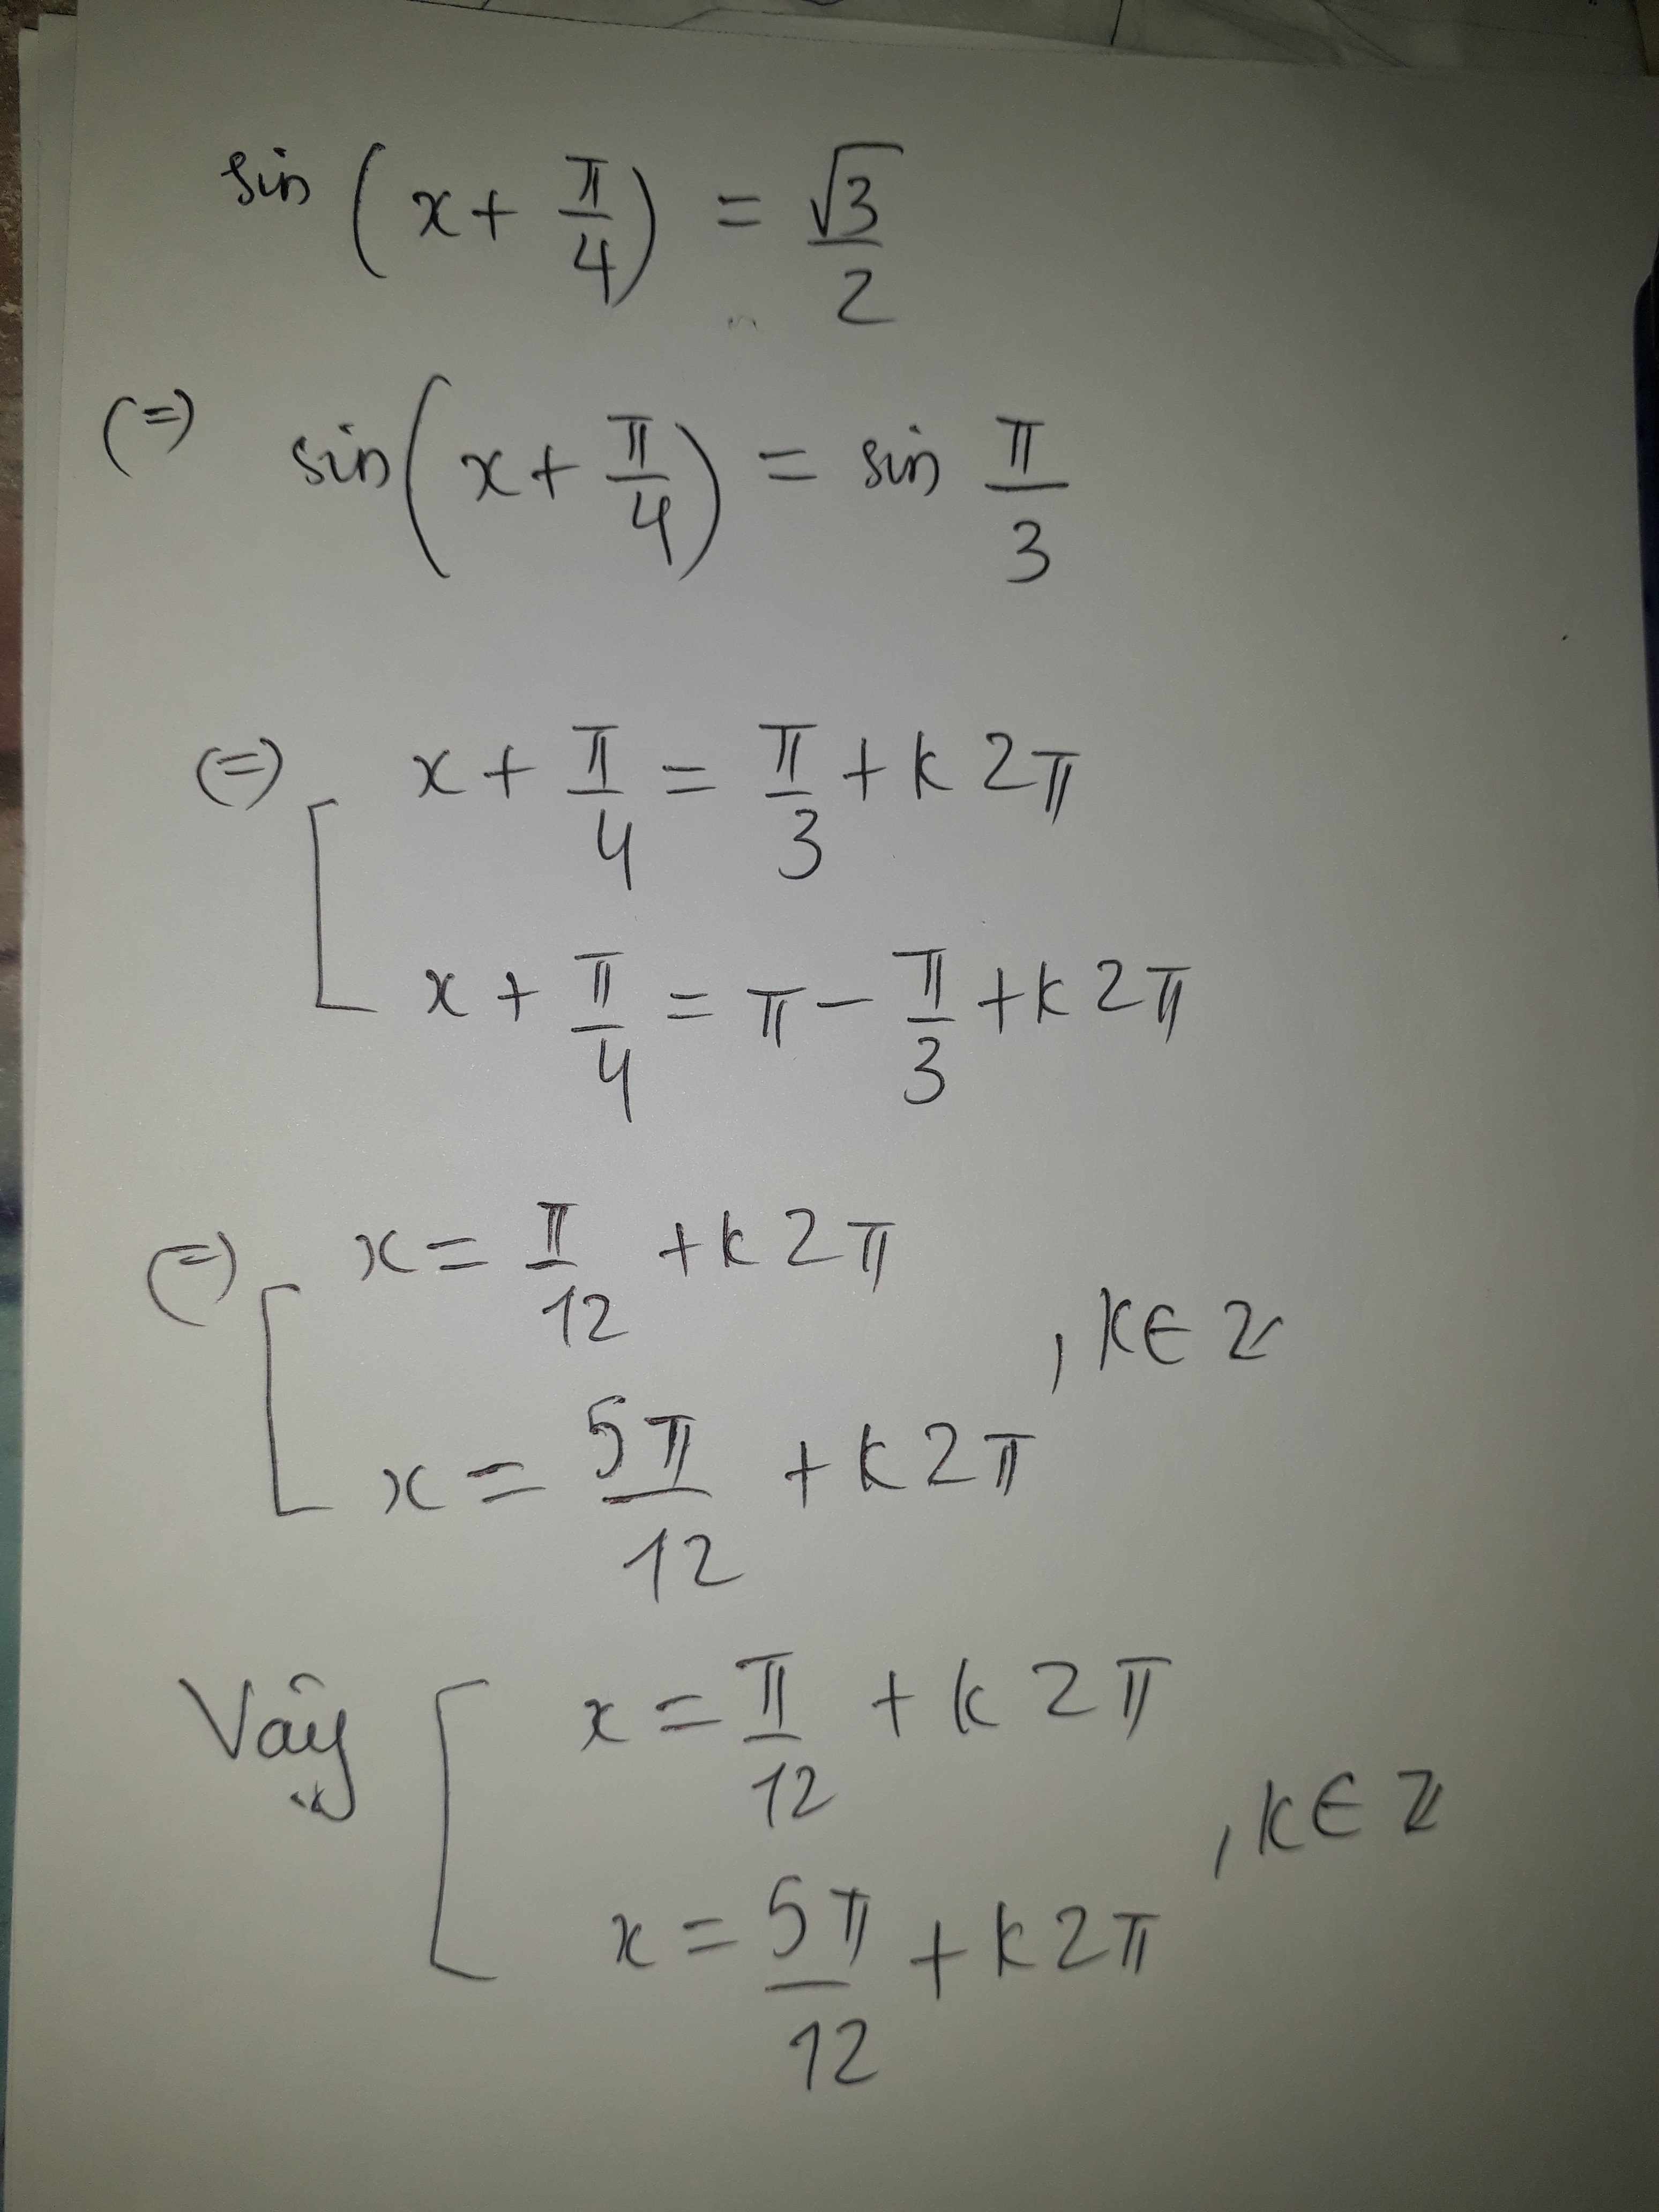 sin (x + π/4) = √3/2
(=) sin(x + π/4) = sin π/3
(=) [ x + π/4 = π/3 + k2π
x + π/4 = π - π/3 + k2π
(=) [ x = π/12 + k2π
, k ∈ Z
x = 5π/12 + k2π
Vậy [ x = π/12 + k2π
, k ∈ Z
x = 5π/12 + k2π